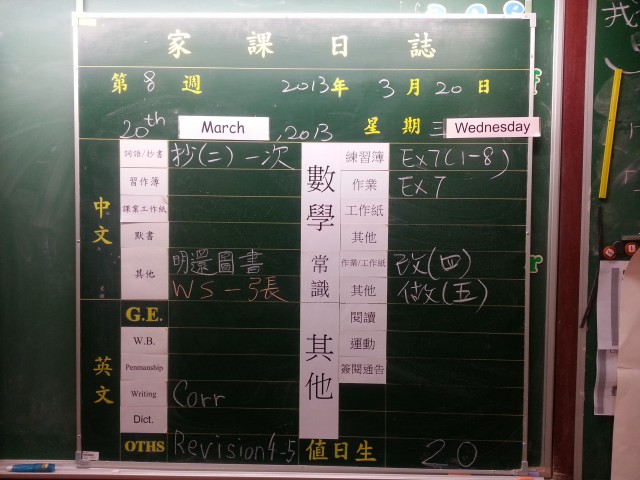 家課日誌
第8週 2013年3月20日
20th March, 2013 星期三 Wednesday
中文
詞語/抄書 抄(二)一次
習作簿
課業工作紙
默書
其他 明還圖書
WS一張
英文
G.E.
W.B.
Penmanship
Writing Corr
Dict.
OTHS Revision 4-5
數學
練習簿 Ex7(1-8)
作業 Ex7
工作紙
其他
常識
作業/工作紙 改(四)
其他 做(五)
其他
閱讀
運動
簽閱通告
值日生 20
我